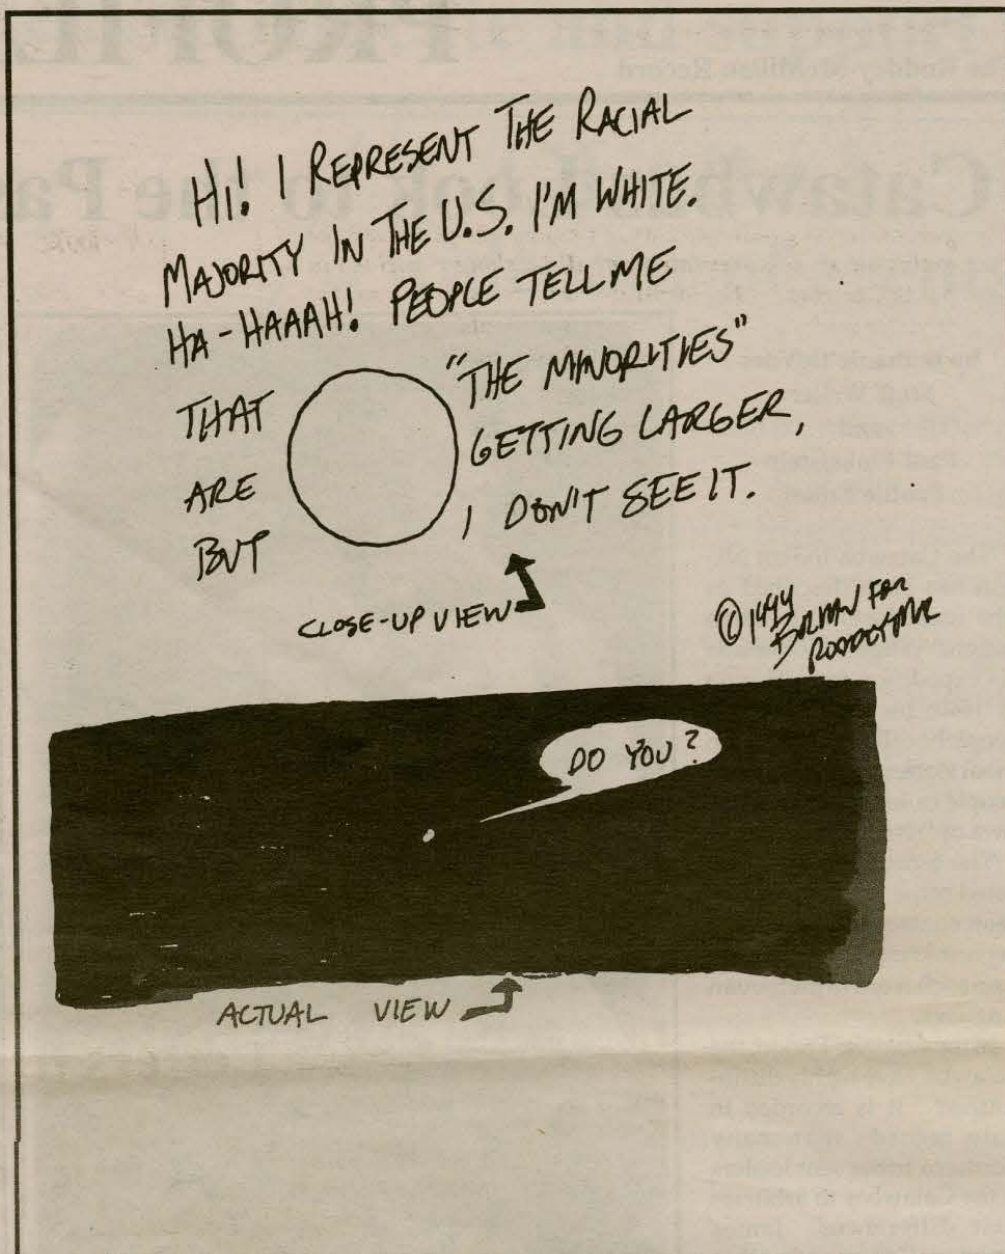 HI! I REPRESENT THE RACIAL
MAJORITY IN THE U.S. I'M WHITE.
HA-HAAAH! PEOPLE TELL ME
THAT "THE MINORITIES"
ARE GETTING LARGER,
BUT I DON'T SEE IT.
CLOSE-UP VIEW
© 1994
FOR
DO YOU?
ACTUAL VIEW